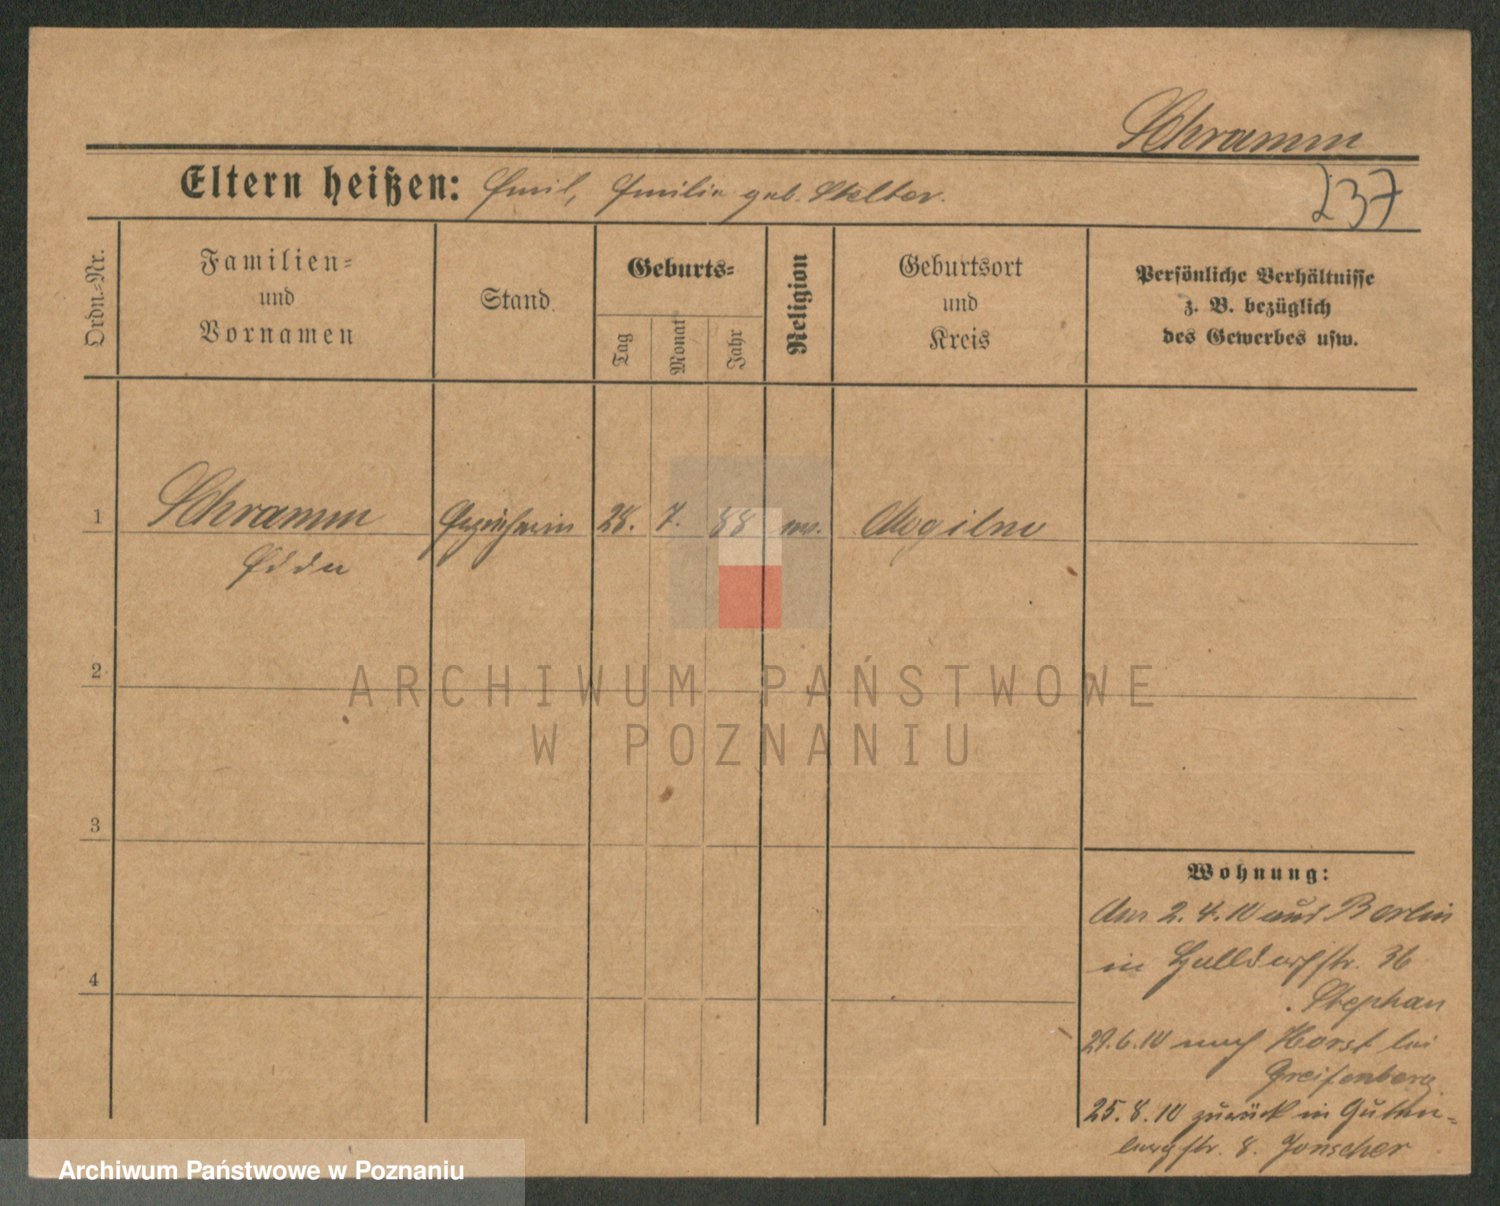 Schramm
Eltern heißen: Emil, Emilie geb. Stelter.
237
Ordn.=Nr.
Familien=
und
Vornamen
Stand
Geburts=
Tag
Monat
Jahr
Religion
Geburtsort
und
Kreis
Persönliche Verhältnisse
z. B. bezüglich
des Gewerbes usw.
1 Schramm Erzieherin 28. 7. 88 ev. Mogilno
Edda
2
3
4
ARCHIWUM PAŃSTWOWE
W POZNANIU
Wohnung:
Am 2.4.10 aus Berlin
in 36
Stephan
29.6.10 nach Horst bei
Greifenberg
25.8.10 zurück in Guten=
bergstr. 8. Jonscher
Archiwum Państwowe w Poznaniu